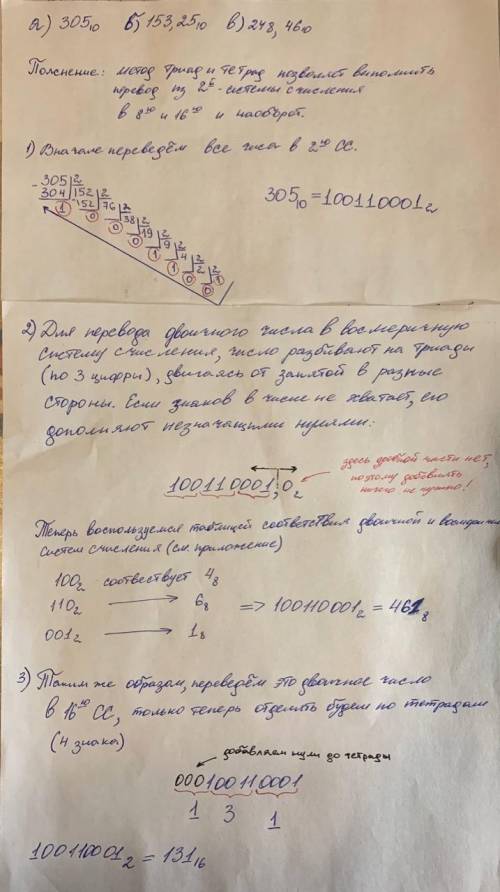 а) 305₁₀ б) 153,25₁₀ в) 248,46₁₀
Пояснение: метод триад и тетрад позволяет виполнить
перевод из 2ᵒй-системы счисления
в 8ᵘю и 16ᵘю и наоборот.
1) Вначале переведём все числа в 2ᵘю СС.
305 2
304 152 2
1 152 76 2
0 38 2
0 19 2
0 9 2
1 4 2
1 2 2
0 1
0
305₁₀=100110001₂
2) Для перевода двоичного числа в восмеричную
систему счисления, число разбивают на триады
(по 3 цифри), двигаясь от запятой в разные
стороны. Если знаков в числе не хватает, его
дополняют незначащими нулями:
100110001,0₂
здесь дробной части нет,
поэтому добавлять
ничего не нужно!
Теперь воспользуемся таблицей соответствия двоичной и
систем счисления (см. приложение)
100₂ соотвествует 4₈
110₂ → 6₈
001₂ → 1₈
=> 100110001₂ = 461₈
3) Таким же образом, переведём это двоичное число
в 16ᵘю СС, только теперь отделять будем по тетрадам
(4 знака)
добавляем нули до тетрады
000100110001
1 3 1
100110001₂ = 131₁₆